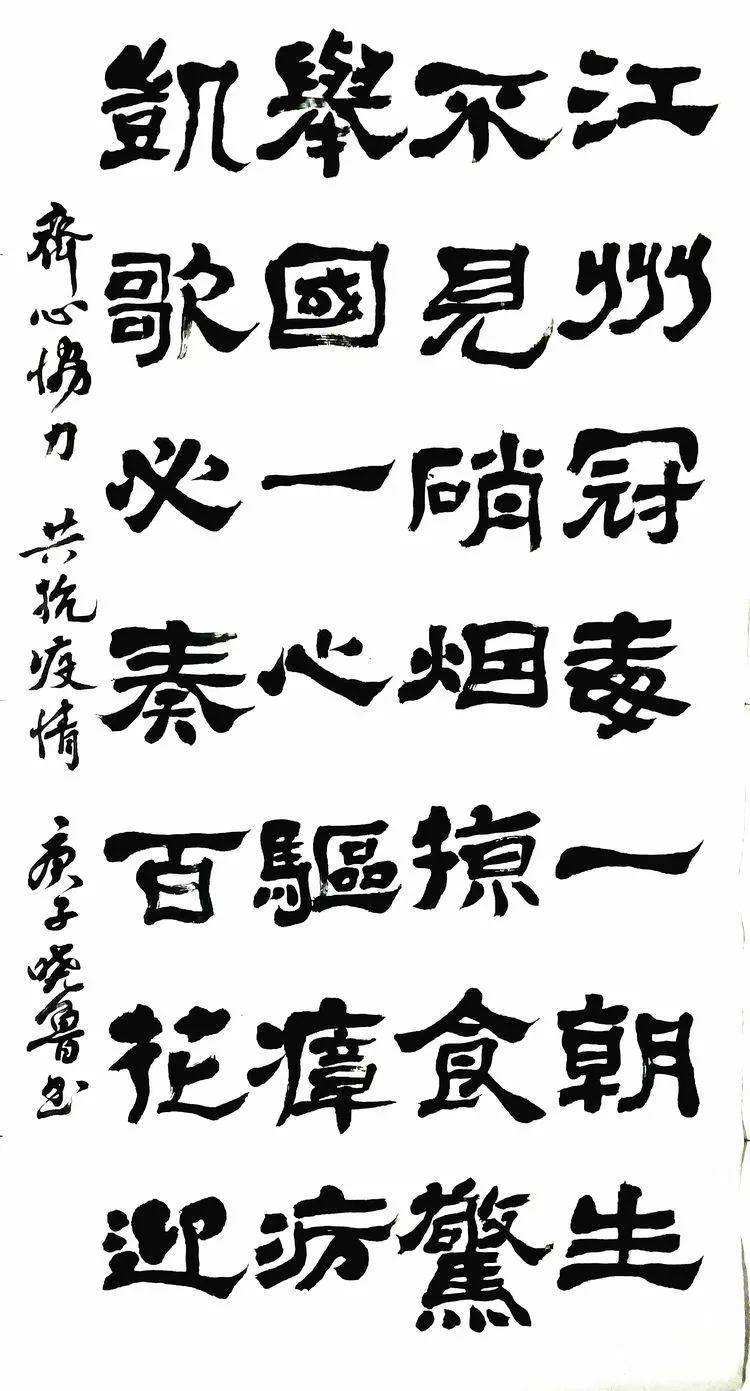 江州冠毒一朝生
不見硝烟掠食驚
舉國一心驅瘴疠
凱歌必奏百花迎
齊心協力 共抗疫情 庚子曉魯書